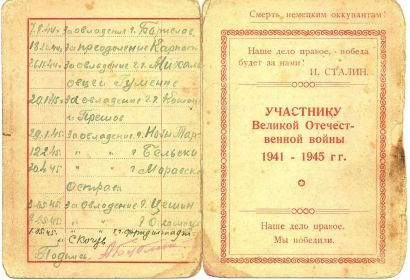 7.8.44. За овладения г. Борислав
За преодоление Карпат
26.11.44. За овладение г.г. Михаль
овце и Гуменне
20.1.45. За овладение г.г. Кошице
и Прешов
29.1.45. За овладение г. Новы-Тарг
12.2.45 " " г. Бельско
30.4.45 " " г. Моравска
Острава
За овладение г. Цешин
" " г. Оломоуц
Подпись
Смерть немецким оккупантам!
Наше дело правое, - победа
будет за нами!
И. СТАЛИН.
УЧАСТНИКУ
Великой Отечест-
венной войны
1941 - 1945 г г.
Наше дело правое.
Мы победили.